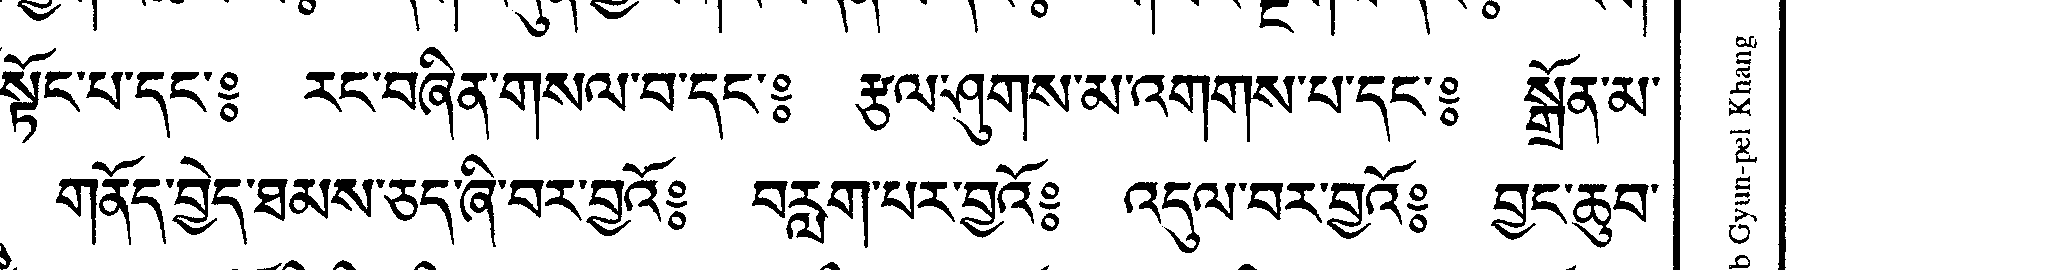 སྟོང་པ་དང་༔ རང་བཞིན་གསལ་བ་དང་༔ རྩལ་ཤུགས་མ་འགགས་པ་དང་༔ སྒྲོན་མ་
གནོད་བྱེད་ཐམས་ཅད་ཞི་བར་བྱའོ༔ བརླག་པར་བྱའོ༔ འདུལ་བར་བྱའོ༔ བྱང་ཆུབ་
Gyun-pel Khang